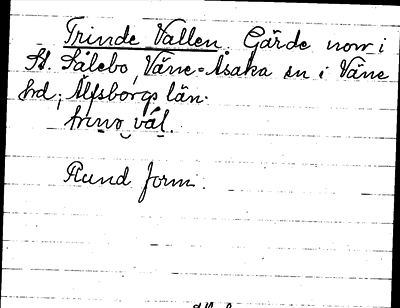 Trinde Vallen. Gärde norr i
St. Sålebo, Väne-Åsaka sn i Väne
hrd, Älfsborgs län.
Rund form.